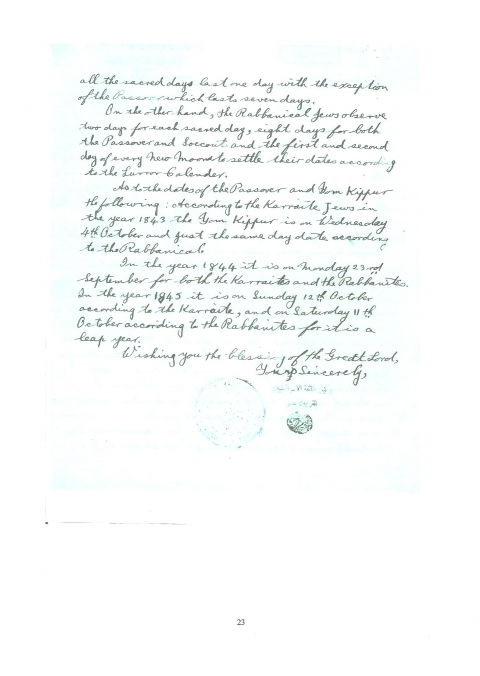 all the sacred days last one day with the exception
of the Passover which lasts seven days.
On the other hand, the Rabbanical Jews observe
two days for each sacred day, eight days for both
the Passover and Soccout and the first and second
day of every New Moon to settle their dates according
to the Lurror Calender.
As to the dates of the Passover and Yom Kippur
the following: According to the Karraite Jews in
the year 1843 the Yom Kippur is on Wednesday
4th October and just the same day date according
to the Rabbanical
In the year 1844 it is on Monday 23rd
September for both the Karraites and the Rabbanites.
In the year 1845 it is on Sunday 12th October
according to the Karraite, and on Saturday 11th
October according to the Rabbanites for it is a
leap year.
Wishing you the blessing of the Great Lord,
Yours Sincerely,
23